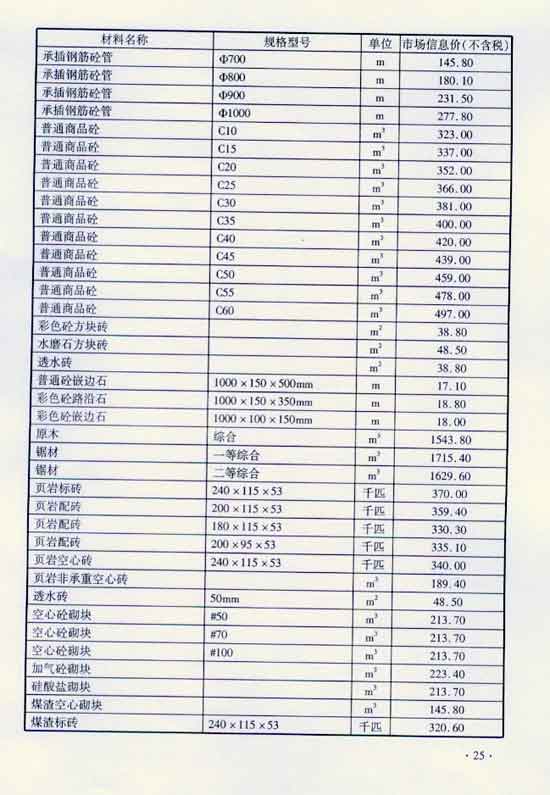 材料名称 规格型号 单位 市场信息价(不含税)
承插钢筋砼管 Φ700 m 145.80
承插钢筋砼管 Φ800 m 180.10
承插钢筋砼管 Φ900 m 231.50
承插钢筋砼管 Φ1000 m 277.80
普通商品砼 C10 m³ 323.00
普通商品砼 C15 m³ 337.00
普通商品砼 C20 m³ 352.00
普通商品砼 C25 m³ 366.00
普通商品砼 C30 m³ 381.00
普通商品砼 C35 m³ 400.00
普通商品砼 C40 m³ 420.00
普通商品砼 C45 m³ 439.00
普通商品砼 C50 m³ 459.00
普通商品砼 C55 m³ 478.00
普通商品砼 C60 m³ 497.00
彩色砼方块砖 m² 38.80
水磨石方块砖 m² 48.50
透水砖 m² 38.80
普通砼嵌边石 1000×150×500mm m 17.10
彩色砼路沿石 1000×150×350mm m 18.80
彩色砼嵌边石 1000×100×150mm m 18.00
原木 综合 m³ 1543.80
锯材 一等综合 m³ 1715.40
锯材 二等综合 m³ 1629.60
页岩标砖 240×115×53 千匹 370.00
页岩配砖 200×115×53 千匹 359.40
页岩配砖 180×115×53 千匹 330.30
页岩配砖 200×95×53 千匹 335.10
页岩空心砖 240×115×53 千匹 340.00
页岩非承重空心砖 m³ 189.40
透水砖 50mm m² 48.50
空心砼砌块 #50 m³ 213.70
空心砼砌块 #70 m³ 213.70
空心砼砌块 #100 m³ 213.70
加气砼砌块 m³ 223.40
硅酸盐砌块 m³ 213.70
煤渣空心砌块 m³ 145.80
煤渣标砖 240×115×53 千匹 320.60
·25·